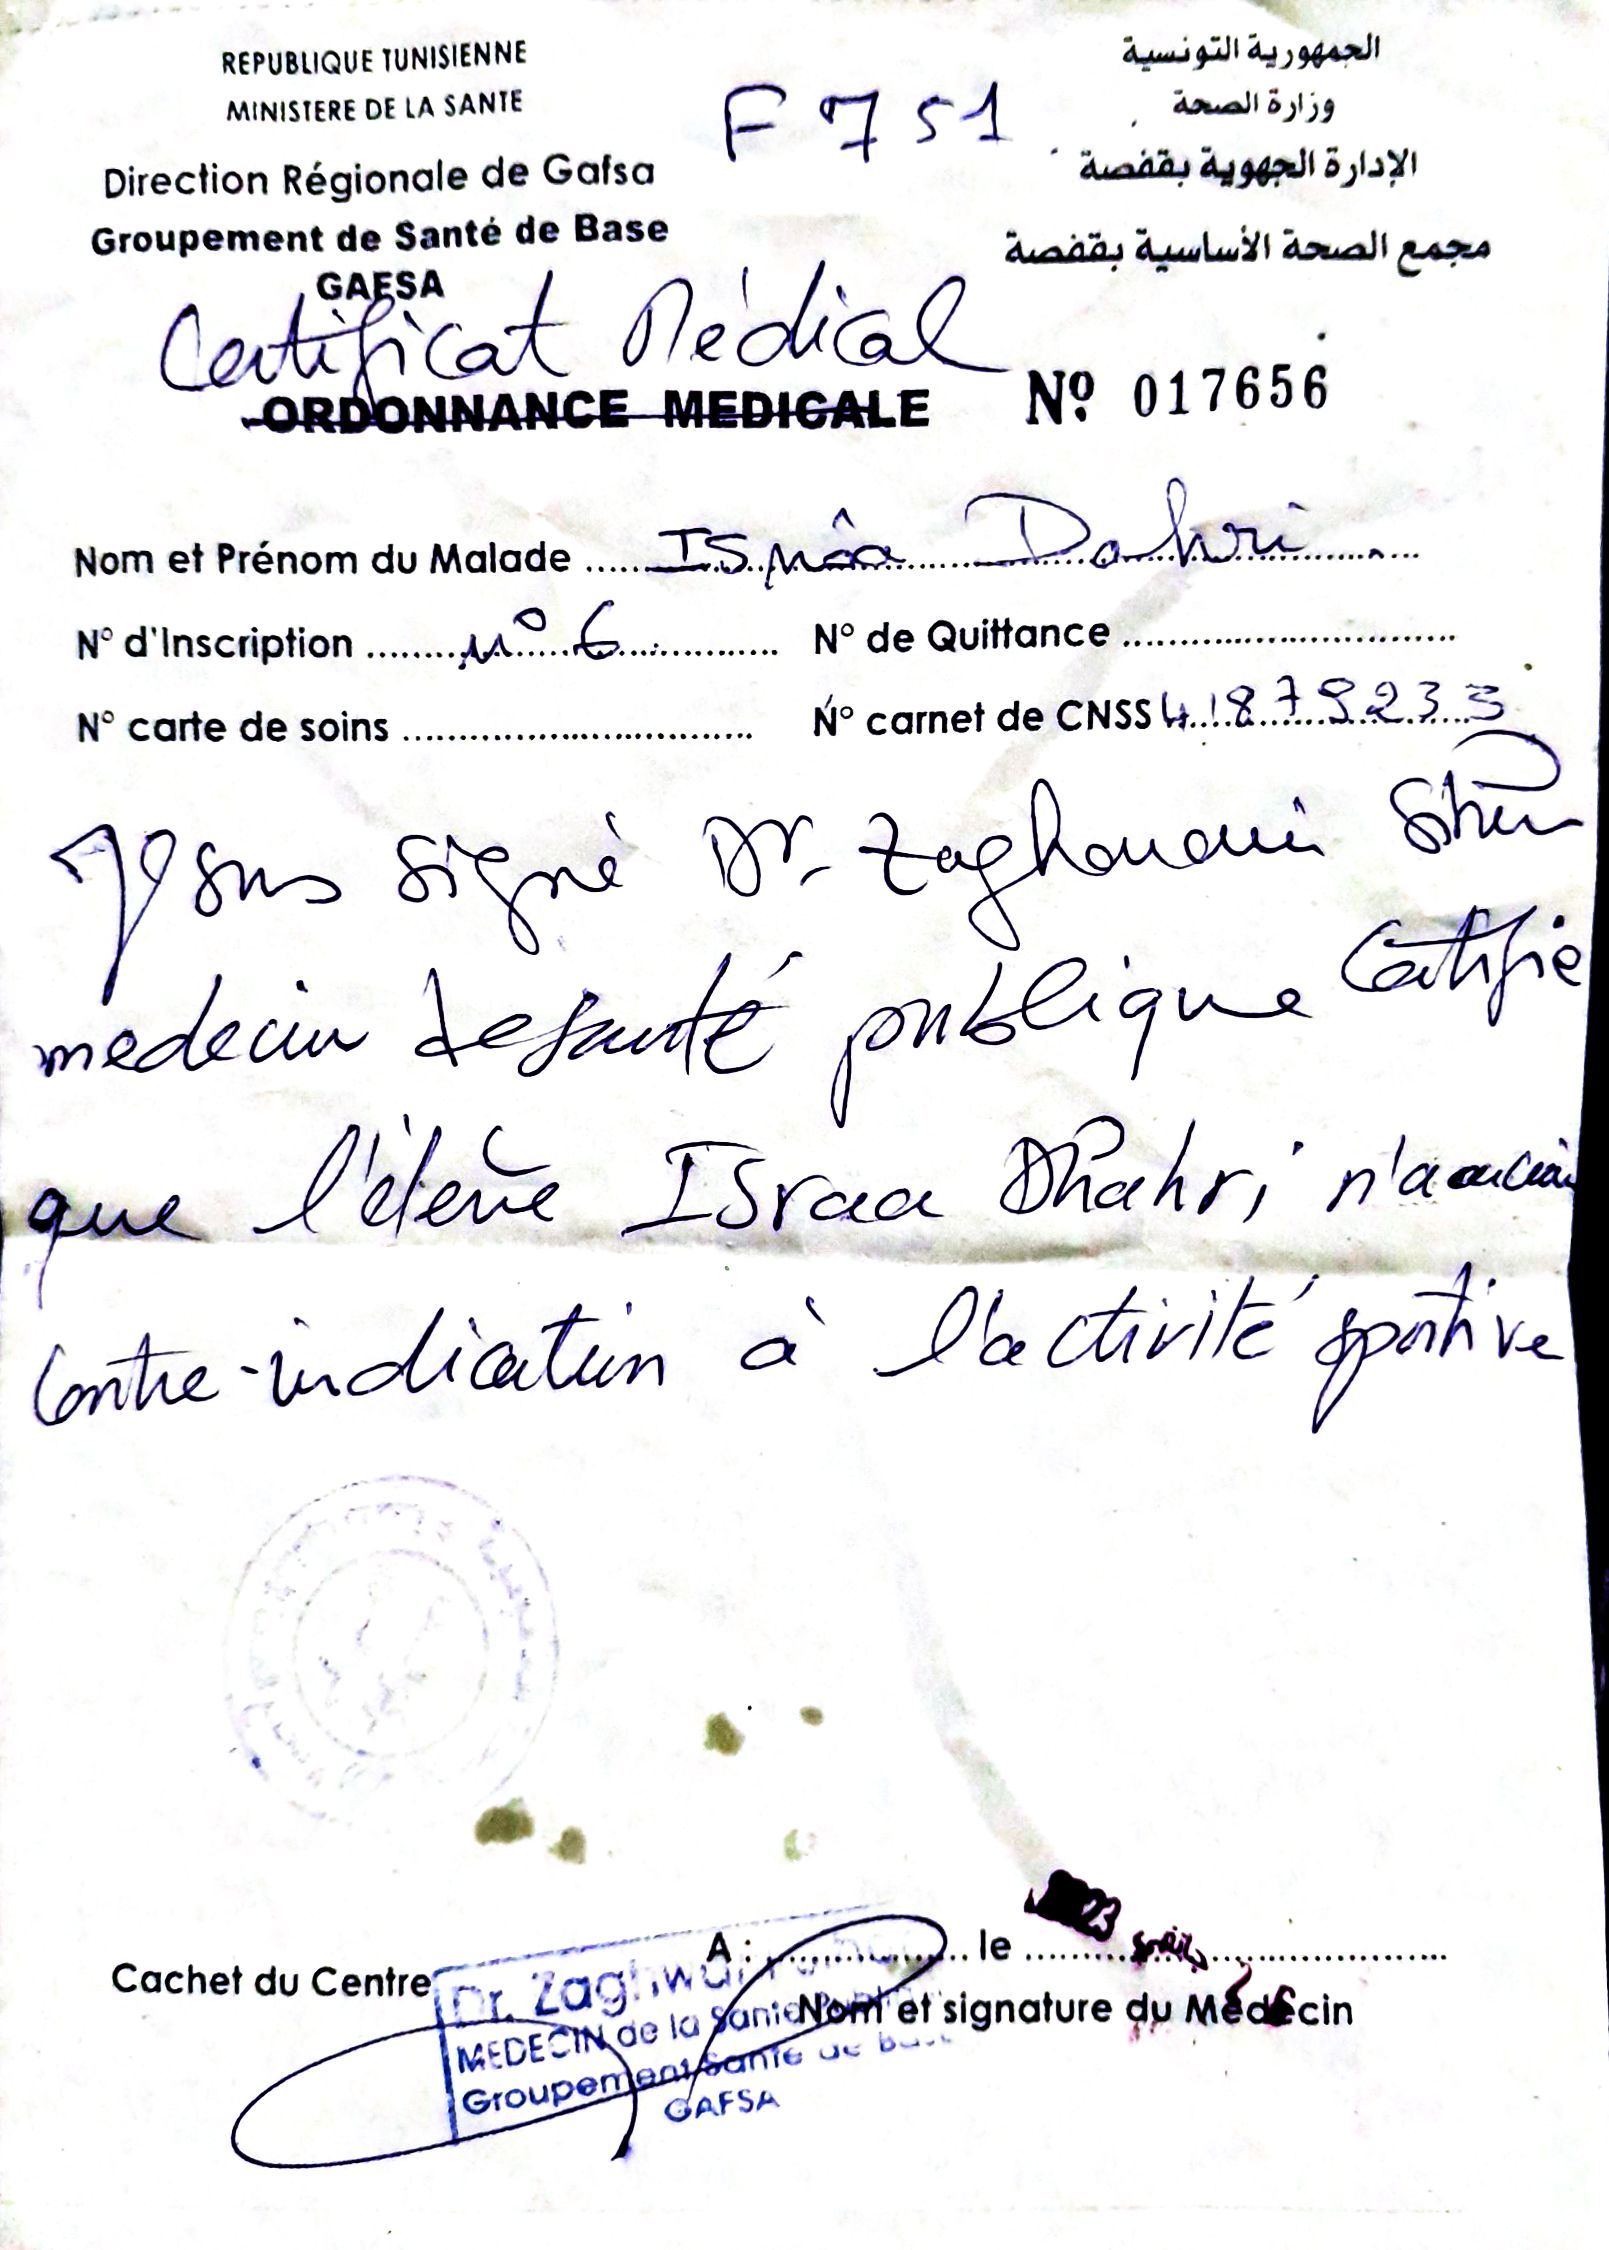 REPUBLIQUE TUNISIENNE
MINISTERE DE LA SANTE
Direction Régionale de Gafsa
Groupement de Santé de Base
GAFSA
F 751
الجمهورية التونسية
وزارة الصحة
الإدارة الجهوية بقفصة
مجمع الصحة الأساسية بقفصة
Certificat Médical
ORDONNANCE MEDICALE Nº 017656
Nom et Prénom du Malade Isrâa Dahri
N° d'Inscription n° 6 N° de Quittance
N° carte de soins N° carnet de CNSS 41879233
Je sous signé Dr. Zaghouani
medecin de santé publique Certifie
que l'élève Israa Dhahri n'a aucune
contre-indication à l'activité sportive
A : le 23
Cachet du Centre
Nom et signature du Médecin
Dr. Zaghwani
MEDECIN de la Santé
Groupement Santé de Base
GAFSA